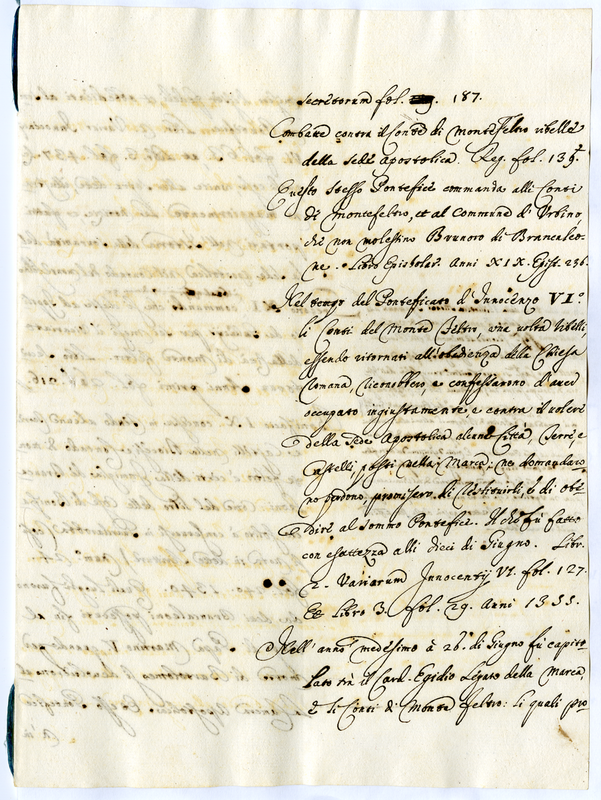 Secretorum fol. 187.
Combatte contro il Conte di Monte Feltro ribelle
della sede Apostolica. Reg. fol. 139.
Questo stesso Pontefice commanda alli Conti
di Montefeltro, et al Commune d'Urbino,
che non molestino Brunoro di Brancaleo=
ne. Libro Epistolar. Anni XIX. Epist. 236.
Nel tempo del Pontificato d'Innocenzo VI°
li Conti del Monte Feltro, una volta ribelli,
essendo ritornati all'obedienza della Chiesa
Romana, riconobbero, e confessarono d'aver
occupato ingiustamente, e contra il volere
della Sede Apostolica alcune Città, Terre, e
Castelli, posti nella Marca: ne domandaro=
no perdono, promisero di restituirli, e di obe=
dire al Sommo Pontefice. Il che fù fatto
con esattezza alli dieci di Giugno. Libr.
2. Variarum Innocentij VI. fol. 127.
Et Libro 3. fol. 29. Anni 1355.
Nell'anno medesimo à 26. di Giugno fù capito=
lato trà il Card. Egidio Legato della Marca,
e li Conti di Monte Feltro: li quali pro=